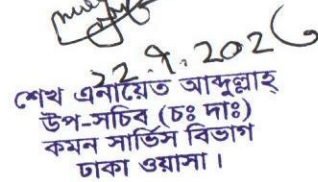 22.9.202
শেখ এনায়েত আব্দুল্লাহ্
উপ-সচিব (চঃ দাঃ)
কমন সার্ভিস বিভাগ
ঢাকা ওয়াসা।